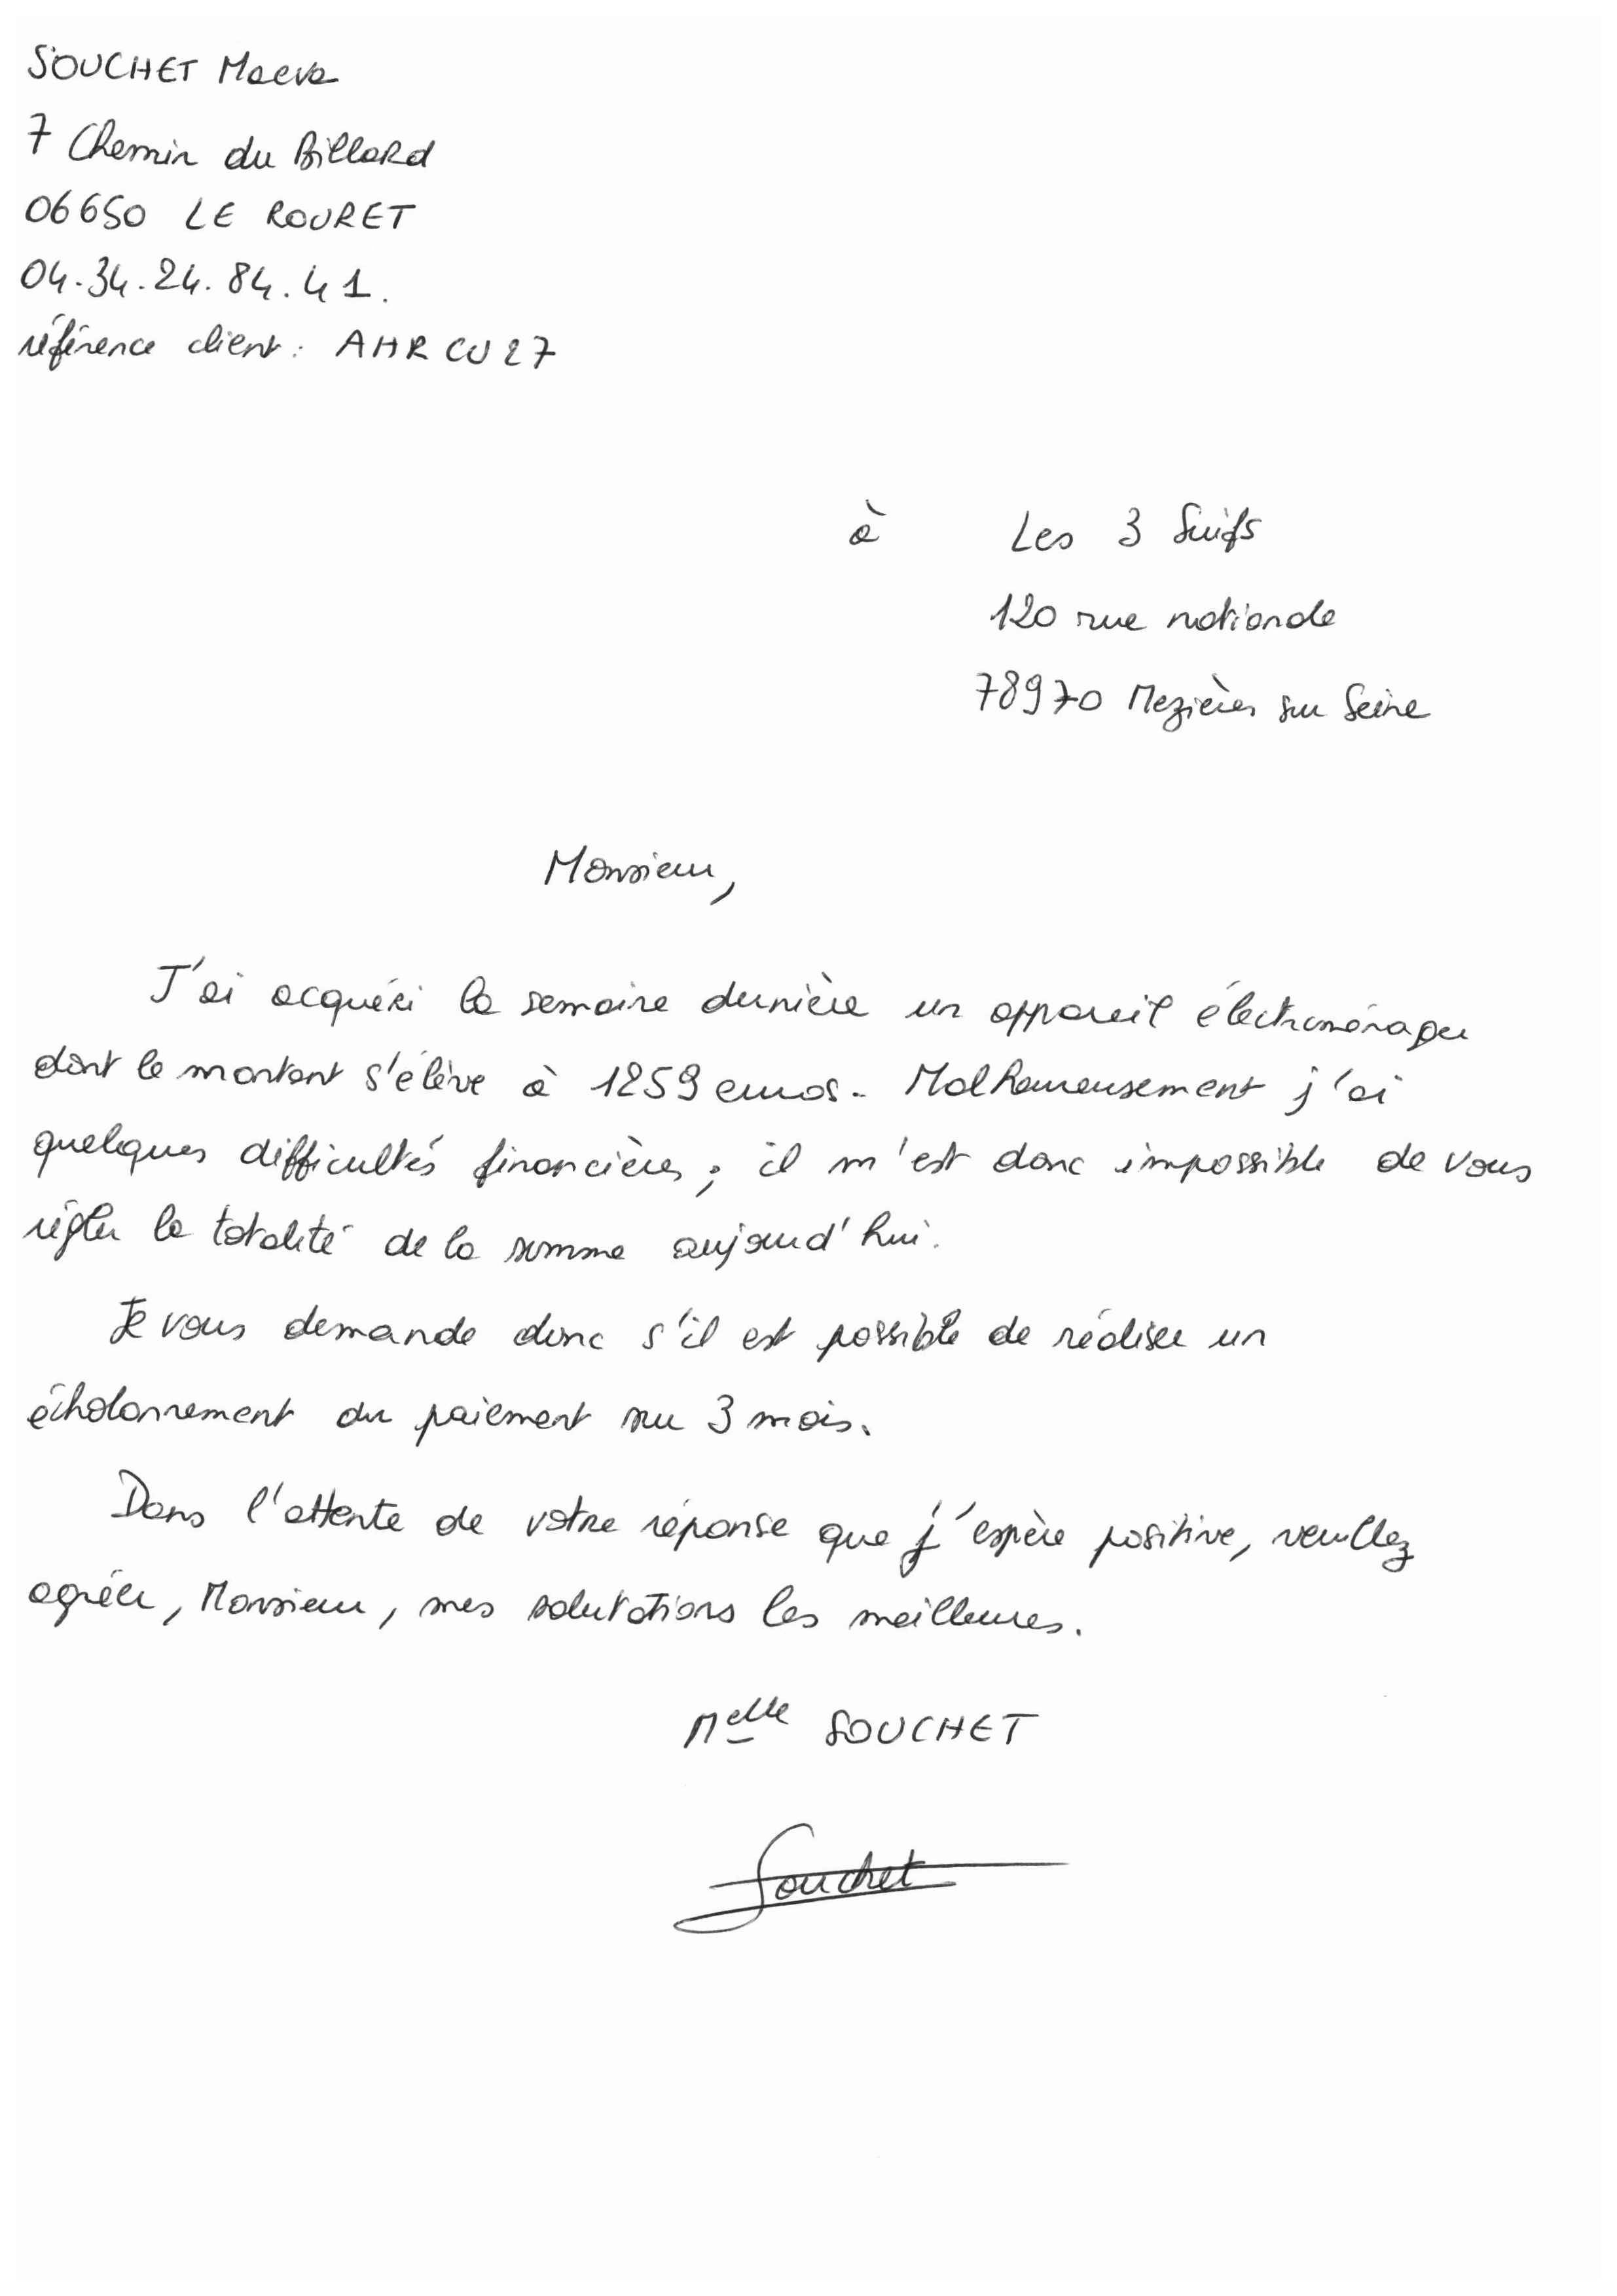 SOUCHET Maeva
7 Chemin du Billard
06650 LE ROURET
04.34.24.84.41.
référence client : AHRCU27
à Les 3 Suifs
120 rue nationale
78970 Mezières sur Seine
Monsieur,
J'ai acquéri la semaine dernière un appareil électroménager
dont le montant s'élève à 1259 euros. Malheureusement j'ai
quelques difficultés financières ; il m'est donc impossible de vous
régler la totalité de la somme aujourd'hui.
Je vous demande donc s'il est possible de réaliser un
échalonnement du paiement sur 3 mois.
Dans l'attente de votre réponse que j'espère positive, veuillez
agréer, Monsieur, mes salutations les meilleures.
Melle SOUCHET
Souchet